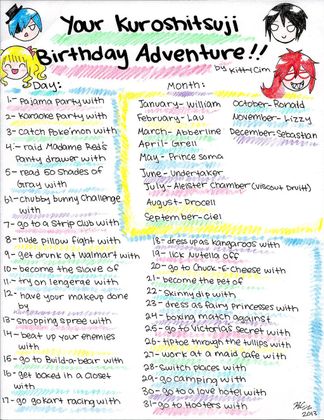 Your Kuroshitsuji
Birthday Adventure!!
by KittyCim
Day:
1- Pajama party with
2- Karaoke party with
3- catch Poke'mon with
4- raid Madame Red's
Panty drawer with
5- read 50 Shades of
Gray with
6- chubby bunny Challenge
with
7- go to a strip club with
8- nude pillow fight with
9- get drunk at Walmart with
10- become the slave of
11- try on lengerae with
12- have your makeup done
by
13- shopping spree with
14- beat up your enemies
with
15- go to Build-a-bear with
16- get locked in a closet
with
17- go gokart racing with
Month:
January- William
February- Lau
March- Abberline
April- Grell
May- Prince soma
June- Undertaker
July- Aleister chamber (Viscout Druitt)
August- Drocell
September- Ciel
October- Ronald
November- Lizzy
December- Sebastian
18- dress up as kangaroos with
19- lick nutella off
20- go to Chuck-E-Cheese with
21- become the pet of
22- skinny dip with
23- dress as fairy princesses with
24- boxing match against
25- go to victoria's secret with
26- tiptoe through the tullips with
27- work at a maid cafe with
28- Switch places with
29- go camping with
30- go to a love hotel with
31- go to Hooters with
2013